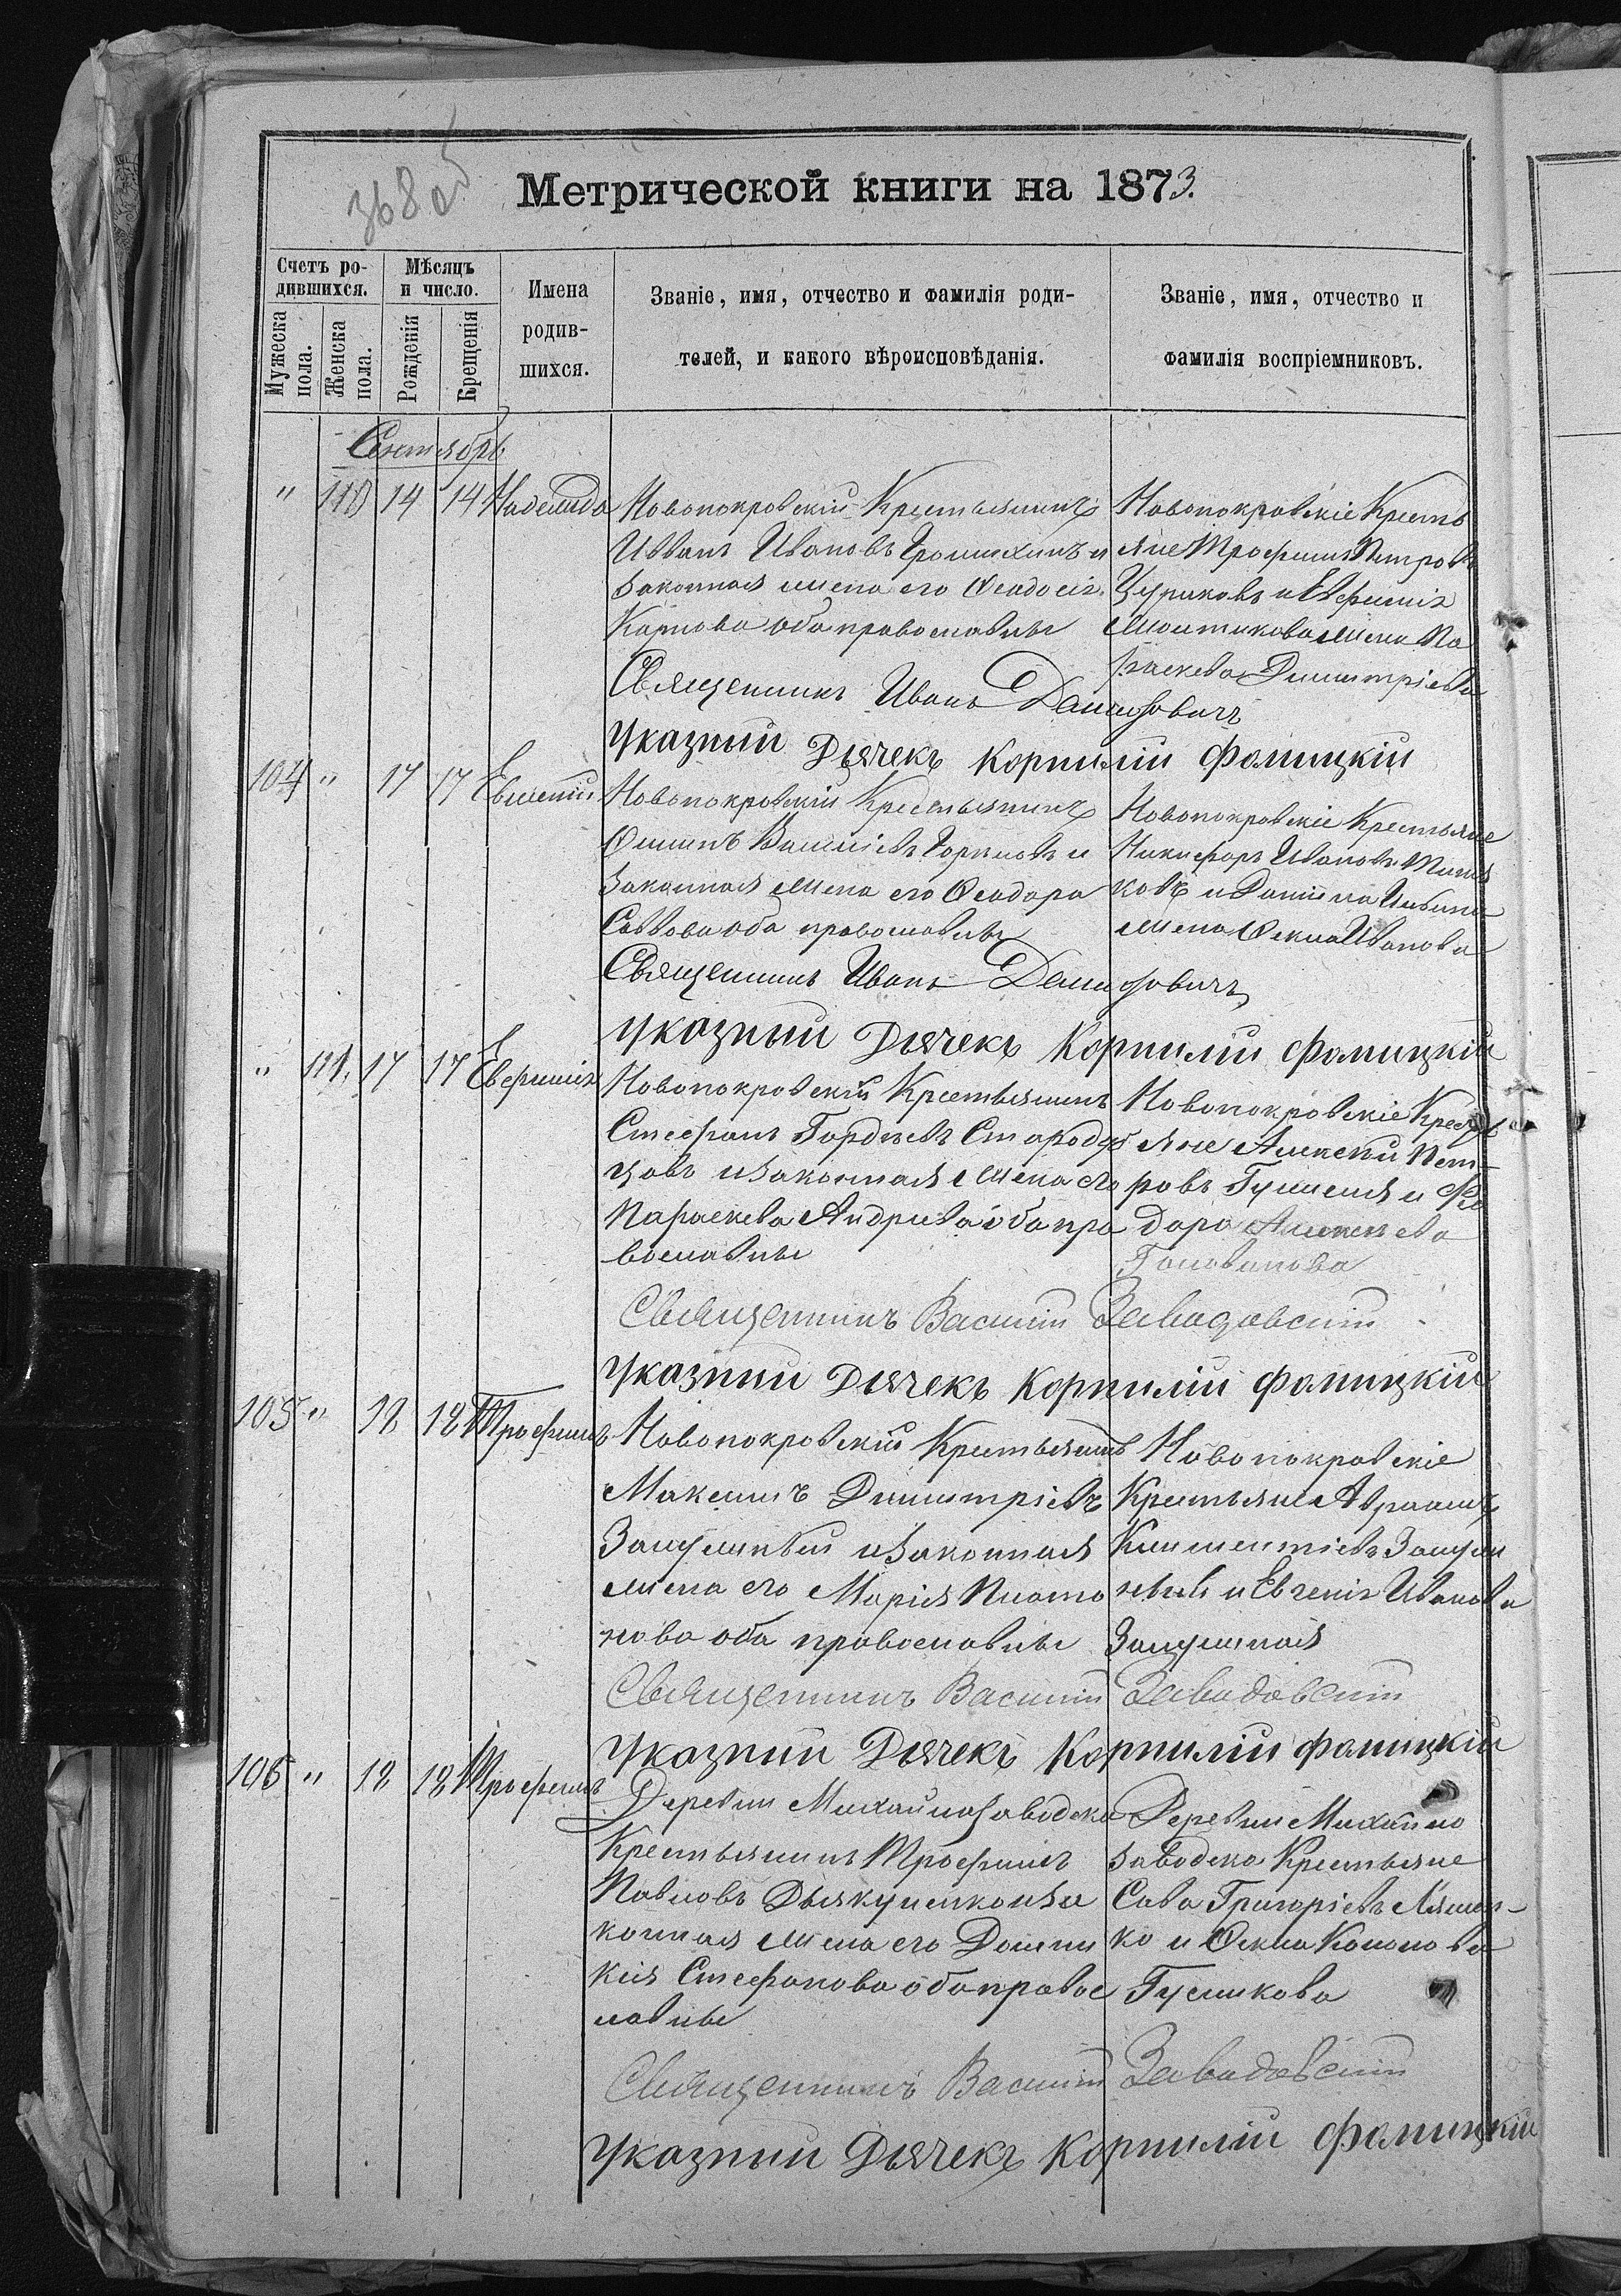 368 об
Метрической книги на 1873.
Счетъ ро-
дившихся.
Мѣсяцъ
и число.
Имена
родив-
шихся.
Званіе, имя, отчество и фамилія роди-
телей, и какого вѣроисповѣданія.
Званіе, имя, отчество и
фамилія воспріемниковъ.
Мужеска
пола.
Женска
пола.
Рожденія
Крещенія
Сентябрь
" 110 14 14 Надежда
Новопокровскій Крестьянинъ
Иванъ Ивановъ и
законная жена его Феодосія
Карпова оба православные
Новопокровскіе Кресть
яне Трофимъ Петровъ
Цуриковъ и Евфимія
жена Па
раскева Димитріева
Священникъ Иванъ
Указный Дьячекъ Корнилій Фомицкій
104 " 17 17 Евменій
Новопокровскій Крестьянинъ
Василіевъ и
Законная жена его Феодора
Саввова оба православны
Новопокровскіе Крестьяне
Никифоръ Ивановъ
ковъ и Даніила
жена Фекла Иванова
Священникъ Иванъ
Указный Дьячекъ Корнилій Фомицкій
" 111. 17 17 Евфимія
Новопокровскій Крестьянинъ
Стефанъ Гордѣевъ Стародуб
цовъ и законная жена его
Параскева Андреева оба пра
вославные
Новопокровскіе Кресть
яне Алексѣй Пет-
ровъ и Фео
дора Алексеева
Голованова
Священникъ Василій Заводовскій
Указный Дьячекъ Корнилій Фомицкій
105 " 18 18 Трофимъ
Новопокровскій Крестьянинъ
Максимъ Димитріевъ
и законная
жена его Марія Плато
нова оба православны
Новопокровскіе
Крестьяне Авраамъ
Климентіевъ
и Евгенія Иванова
Священникъ Василій Заводовскій
Указный Дьячекъ Корнилій Фомицкій
106 " 18 18 Трофимъ
Деревни Михайлозаводска
Крестьянинъ Трофимъ
Павловъ Дьякуненко и за
конная жена его Домни
кія Стефанова оба правос
лавны
Деревни Михайло
заводска Крестьяне
Сава Григоріевъ Ляшен-
ко и Фекла Кононова
Гусликова
Священникъ Василій Заводовскій
Указный Дьячекъ Корнилій Фомицкій